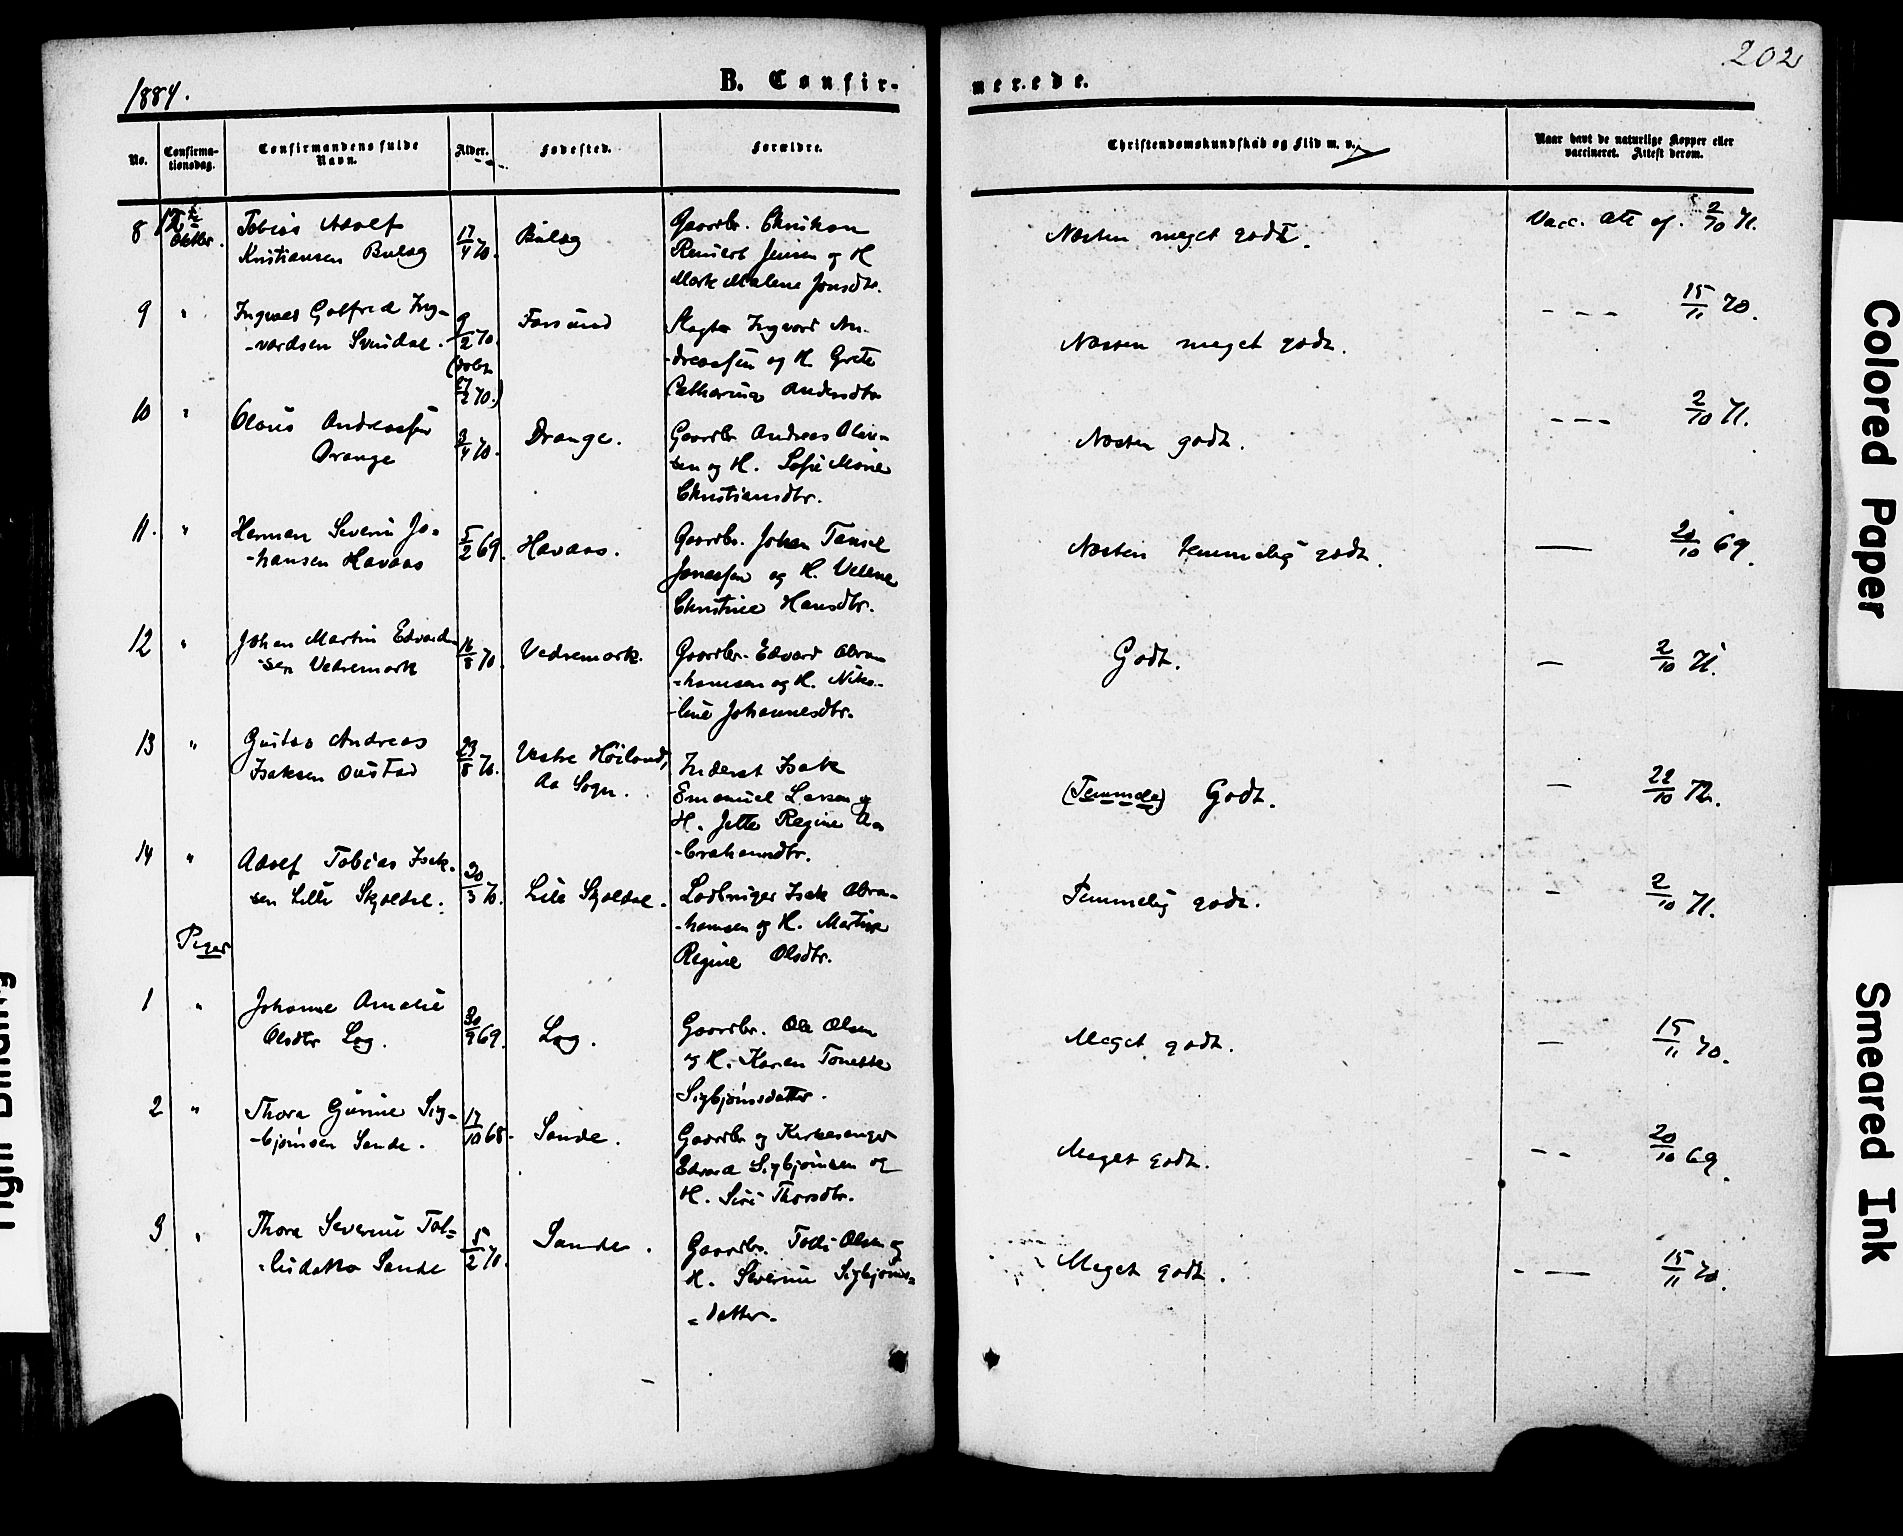 202
1884.
B. Confir-
merede.
No.
Confirma-
tionsdag.
Confirmandens fulde
Navn.
Alder.
Fødested.
Forældre.
Christendomskundskab og Flid m. v.
Naar havt de naturlige Kopper eller
vaccineret. Attest derom.
8 12te Oktbr. Tobias Adolf
Kristiansen Bulæg
17/4 70. Bulæg
Gaardbr. Christian
Reinert Jensen og H.
Malene Jonsdtr.
Næsten meget godt. Vacc. att af. 2/10 71.
9 " Ingvald Gotfred Ing-
-vardsen Svindal.
9/2 70.
(døbt
27/2 70.)
Farsund
Slagter Ingvard An-
-dreassen og H. Grete
Catharina Andersdtr
Næsten meget godt. - - - 15/11 70.
10 " Olaus Andreassen
Drange
3/4 70. Drange.
Gaardbr. Andreas Olau-
sen og H. Sofie Marie
Christiansdtr.
Næsten godt. - - - 2/10 71.
11. " Herman Severin Jo-
-hansen Havaas
5/2 69. Havaas.
Gaardbr. Johan Tønnes
Jonassen og H. Velene
Christine Hansdtr.
Næsten temmelig godt. — 20/10 69.
12 " Johan Martin Edvard-
-sen Vedremark
16/8 70. Vedremark.
Gaardbr. Edvard Abra-
-hamsen og H. Niko-
-line Johannesdtr.
Godt. — 2/10 71.
13 " Gustav Andreas
Isaksen Oustad
23/8 70. Vestre Høiland,
Aa Sogn.
Inderst Isak
Emanuel Larsen og
H. Jette Regine A-
-brahamsdtr.
(Temmelig) Godt. — 22/10 72.
14 " Adolf Tobias Isak-
sen Lille Skjoldal.
30/3 70. Lille Skjoldal.
Isak Abra-
-hamsen og H. Martine
Regine Olsdtr.
Temmelig godt. - 2/10 71.
Piger
1 " Johanne Amalie
Olsdtr Log.
30/9 69. Log.
Gaardbr. Ole Olsen
og H. Karen Tonette
Sigbjørnsdatter.
Meget godt. — 15/11 70.
2 " Thora Gurine Sig-
-bjørnsen Sande.
17/10 68. Sande.
Gaardbr og Kirkesanger
Edvard Sigbjørnsen og
H. Siri Thorsdtr.
Meget godt. - - 20/10 69.
3. " Thora Severine Tol-
-lisdatter Sande
5/2 70. Sande.
Gaardbr. Tolli Olsen og
H. Severine Sigbjørns-
-datter.
Meget godt. - — 15/11 70.
Colored Paper
Smeared Ink
Tight Binding